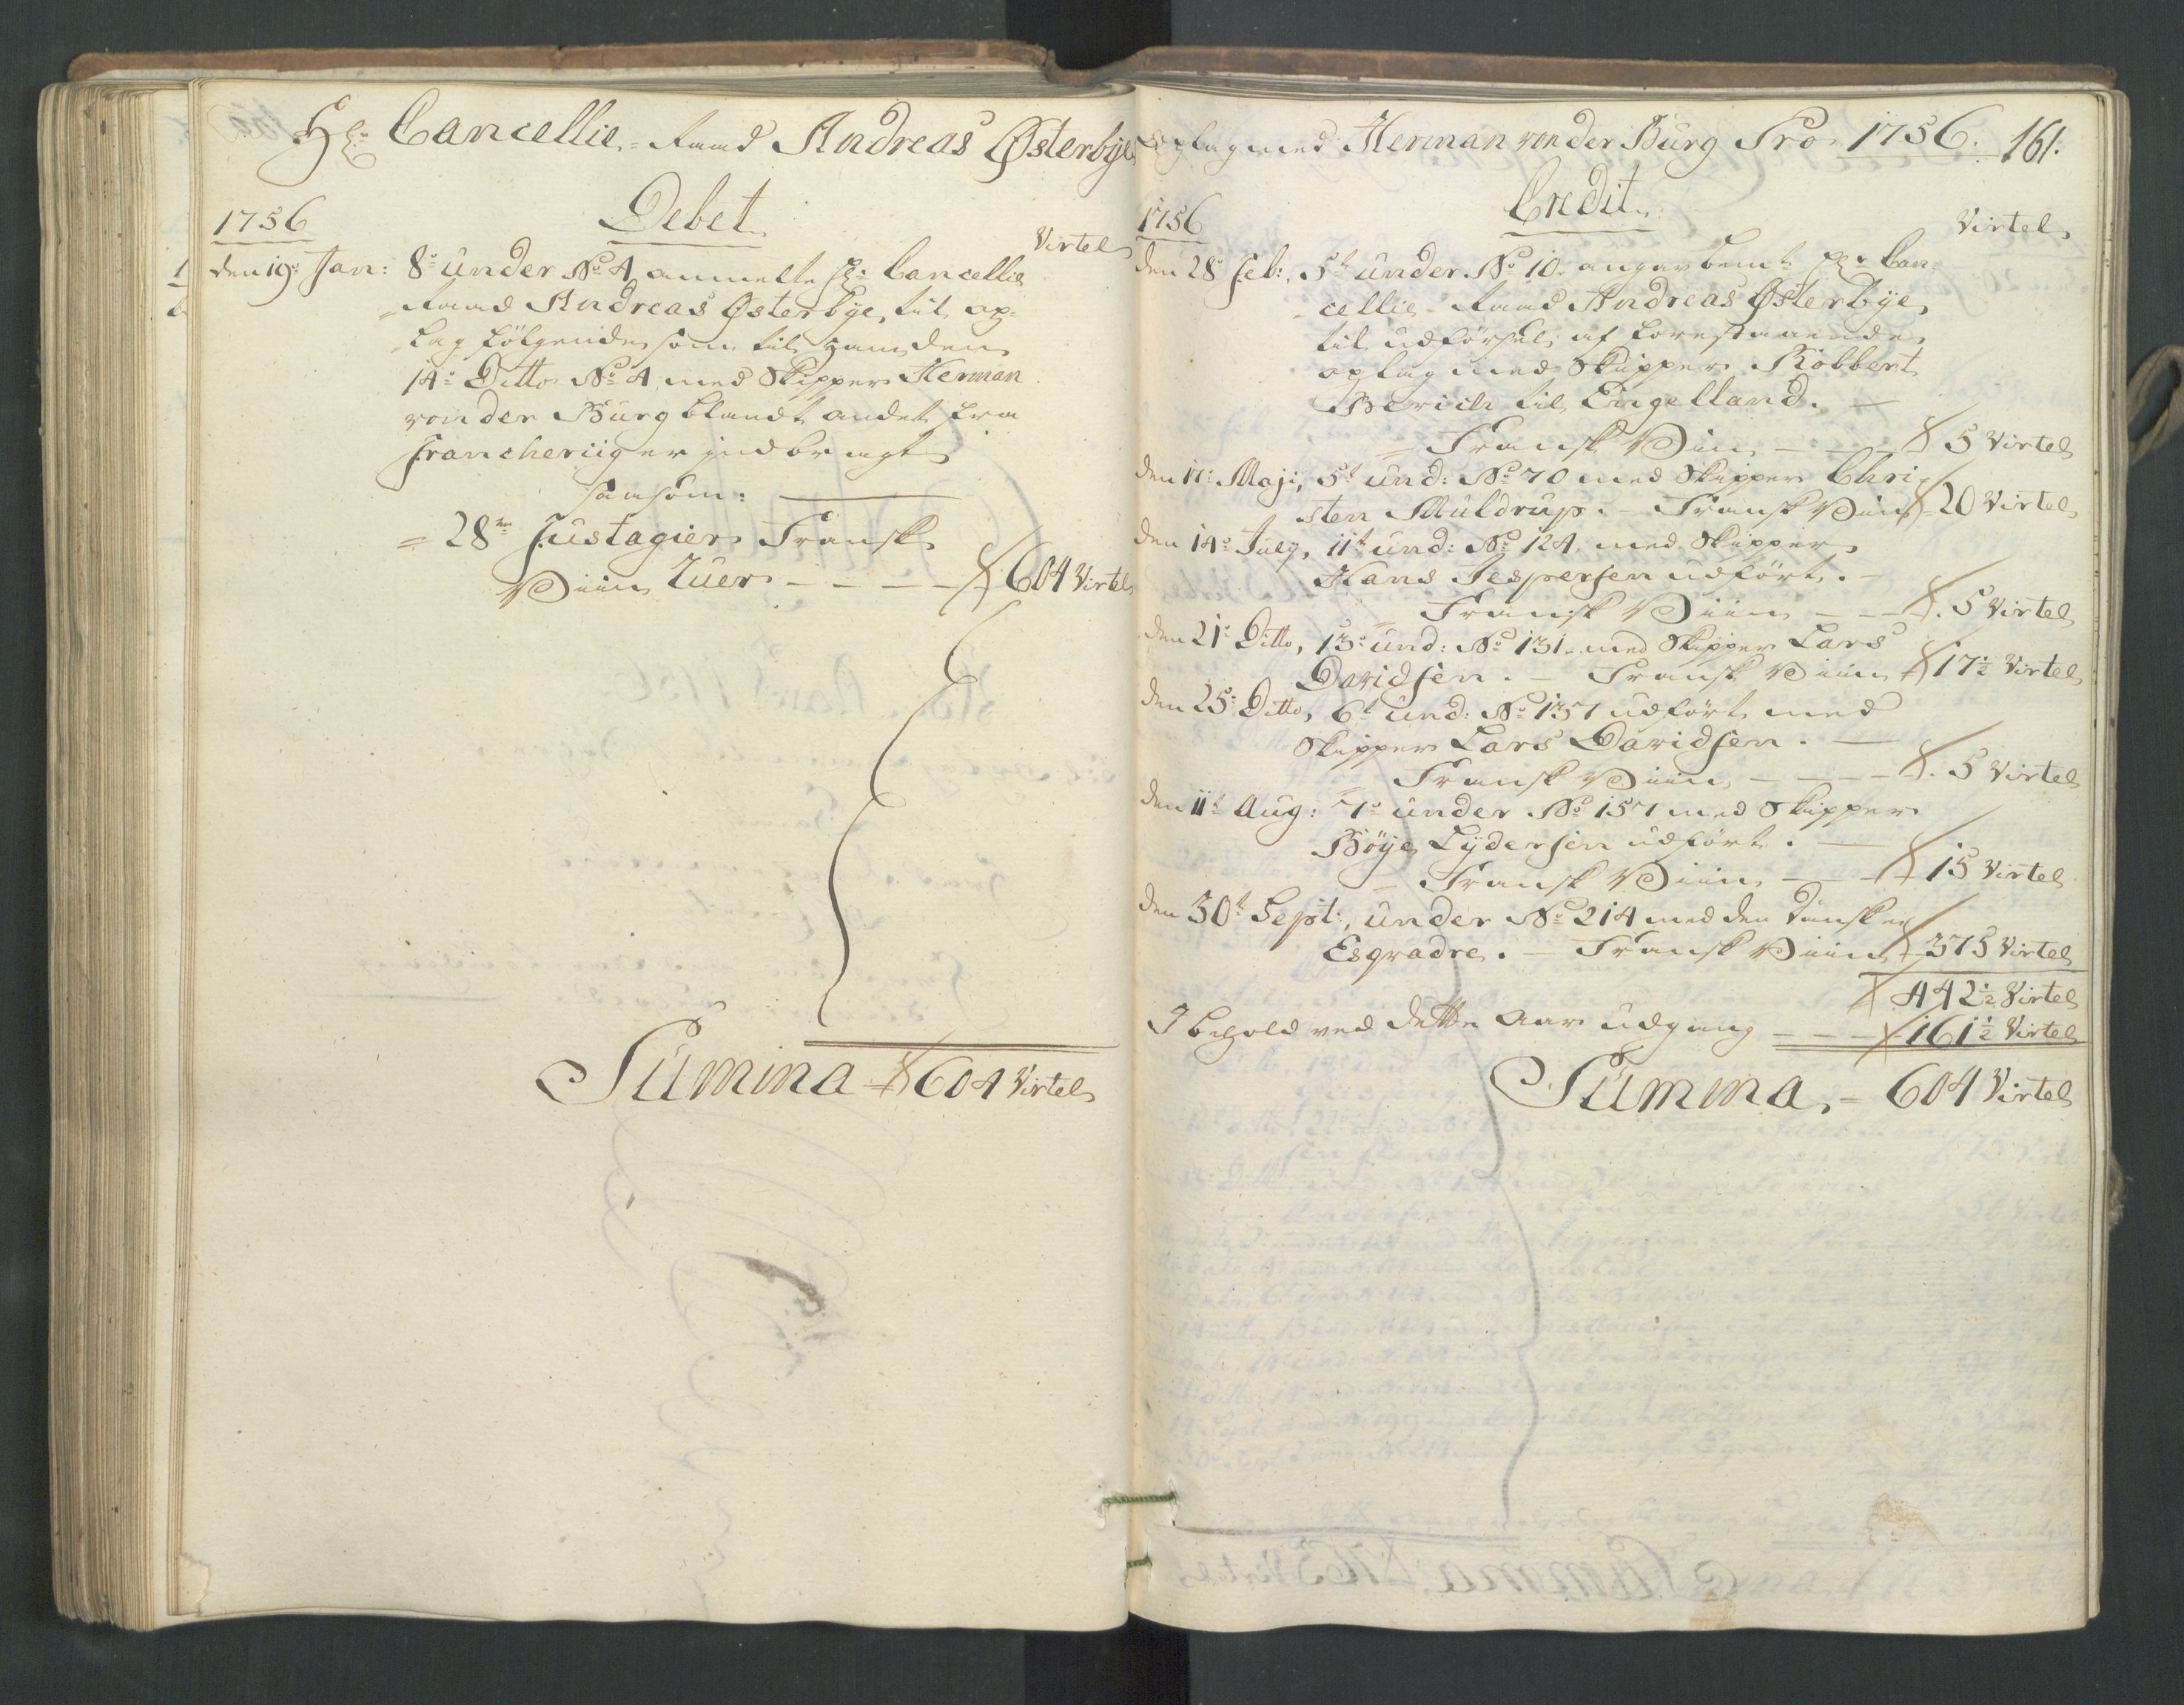 Hr: Cancellie-Raad Andreas Østerbÿe
Debet
1756
Virtel
den 19: Jan: 8: under No 4 anmelte Hr: Cancellie
Raad Andreas Østerbÿe, til op-
lag følgende som til zam den
14: Ditto No 4 med Skipper Herman
von der Burg blandt andet fra
Francheriiger indbragt
saasom:
= 28 Fustagier Fransk
Viin Zuer - - - - 604 Virtel
Summa 604 Virtel
Oplag med Herman von der Burg Pro 1756. 161.
Credit
1756
Virtel
den 28: Feb: 5t under No 10. angav bemt Hr: Can-
cellie-Raad Andreas Østerbÿe
til udførsel af forestaaende
oplag med Skipper Robbert
til Engelland.
= Fransk Viin - - 5 Virtel
den 17: Maji, 5t und: No 70 med Skipper Chri-
sten Muldrup. - Fransk Viin 20 Virtel
den 14: Julÿ, 11t und: No 124 med Skipper
Hans Jespersen udført. -
= Fransk Viin - - 5 Virtel
den 21: Ditto, 13: und: No 131 med Skipper Lars
Davidsen. - Fransk Viin 17½ Virtel
den 25: Ditto, 6t und: No 137 udført med
Skipper Lars Davidsen. -
= Fransk Viin - - - - 5 Virtel
den 11t Aug: 7: under No 157 med Skipper
Böÿe Lÿdersen udført. -
= Fransk Viin - - - 15 Virtel
den 30t Sept:, under No 214 med den Danske
Esqvadre. - Fransk Viin 375 Virtel
442½ Virtel
I behold ved dette Aars udgang - - - 161½ Virtel
Summa, - 604 Virtel